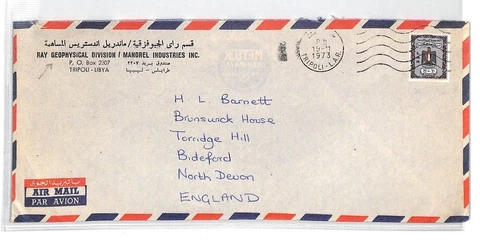 قسم راى الجيوفزقية / ماندريل اندستريس المساهمة
RAY GEOPHYSICAL DIVISION / MANDREL INDUSTRIES INC.
P. O. Box 2307 صندوق بريد ٢٣٠٧
TRIPOLI - LIBYA طرابلس - ليبيا
1973
TRIPOLI - L.A.R.
H L Barnett
Brunswick House
Torridge Hill
Bideford
North Devon
ENGLAND
بالبريد الجوى
AIR MAIL
PAR AVION